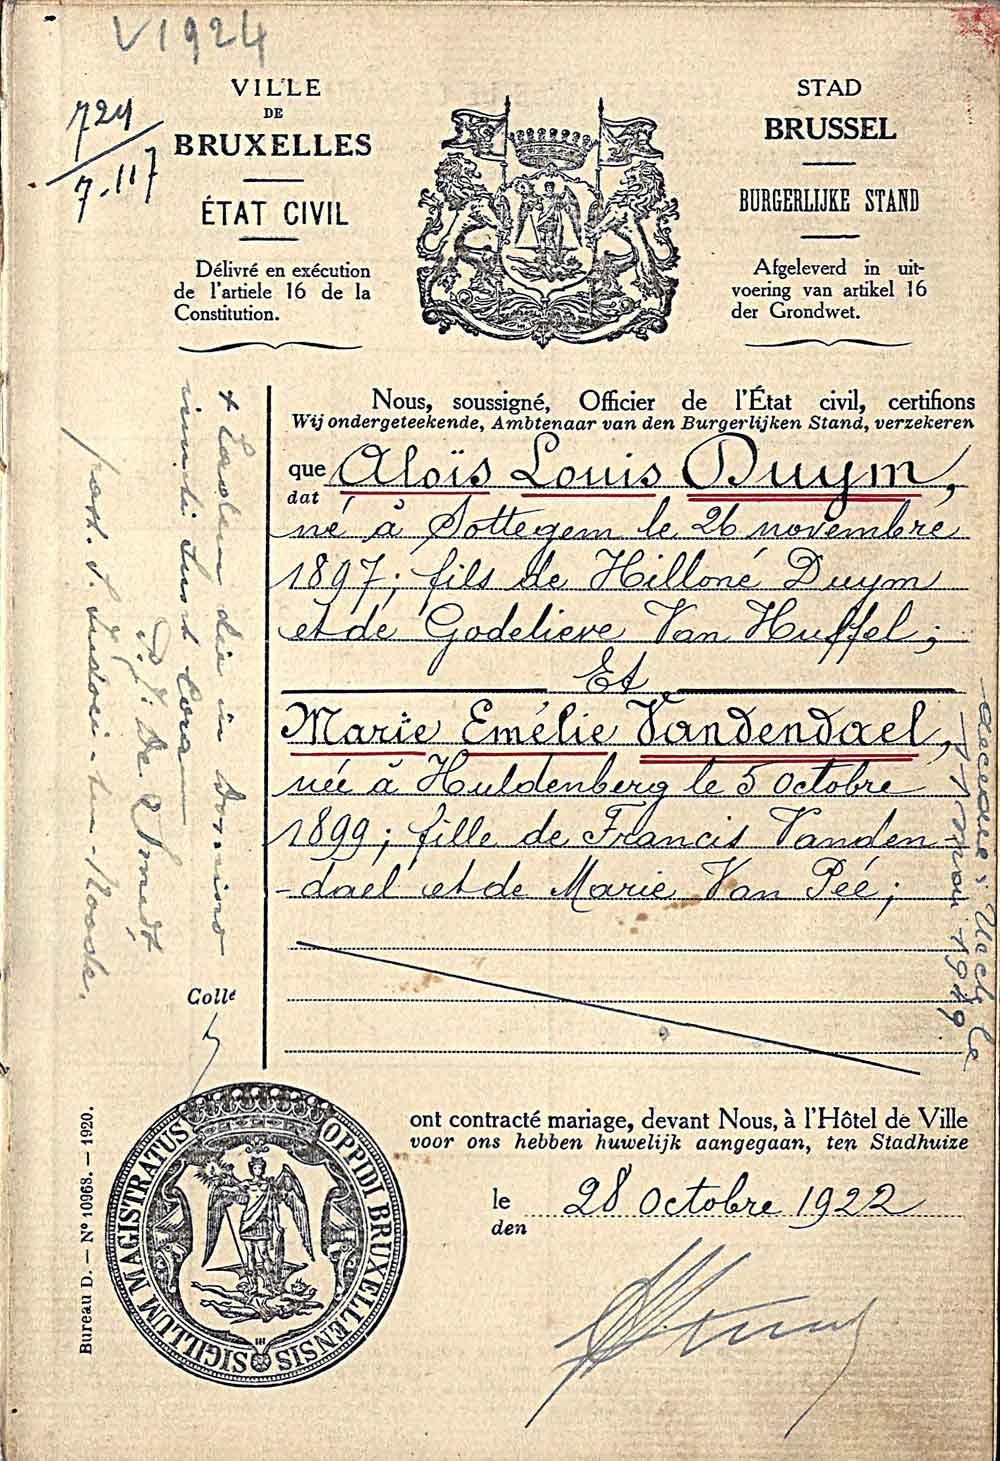 V 1924
724
7.117
VILLE
DE
BRUXELLES
ÉTAT CIVIL
Délivré en exécution
de l'artiele 16 de la
Constitution.
STAD
BRUSSEL
BURGERLIJKE STAND
Afgeleverd in uit-
voering van artikel 16
der Grondwet.
Nous, soussigné, Officier de l'État civil, certifions
Wij ondergeteekende, Ambtenaar van den Burgerlijken Stand, verzekeren
que Aloïs Louis Duym,
dat
né à Sottegem le 26 novembre
1897; fils de Hilloné Duym
et de Godelieve Van Huffel;
Et
Marie Emélie Vandendael,
née à Huldenberg le 5 octobre
1899; fille de Francis Vanden-
-dael et de Marie Van Péé;
+ Eadem die in
coram
De Smedt,
past.
Uccle le
1949
Collé
ont contracté mariage, devant Nous, à l'Hôtel de Ville
voor ons hebben huwelijk aangegaan, ten Stadhuize
le 28 octobre 1922
den
SIGILLUM MAGISTRATUS OPPIDI BRUXELLENSIS
Bureau D. — N° 10968. — 1920.